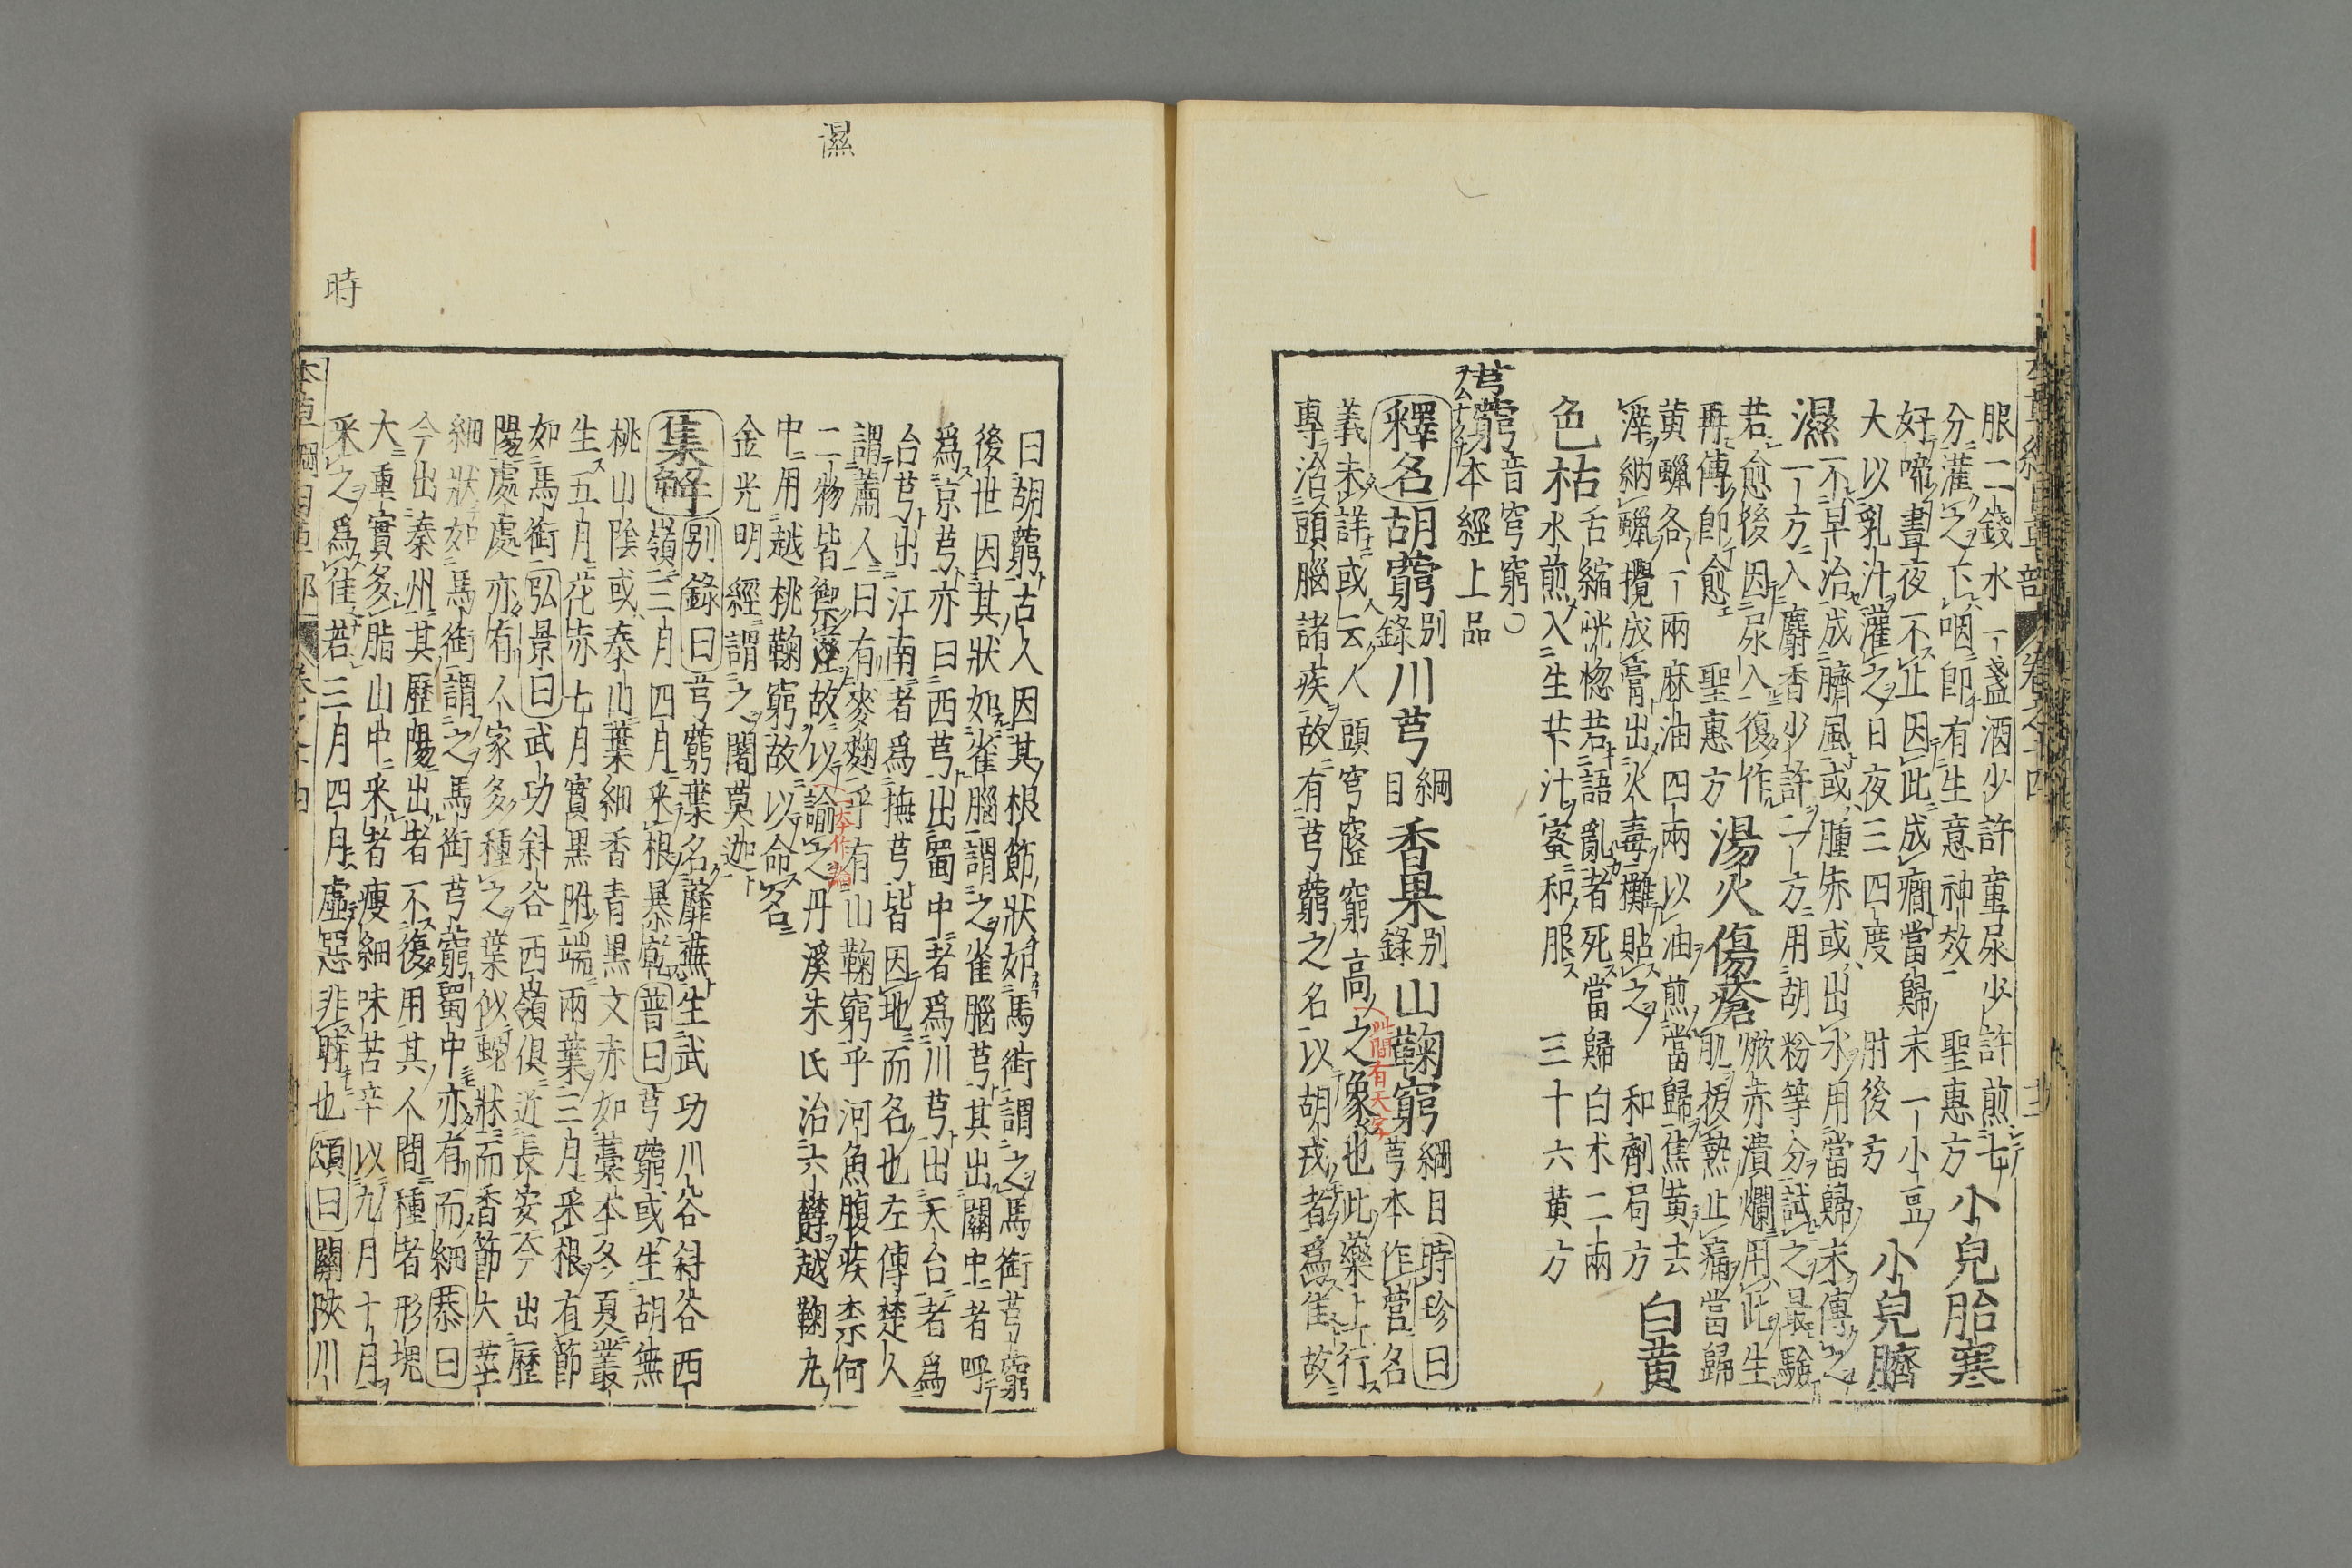 服二錢水一盞酒少許童尿少許煎七
分灌之下咽即有生意神效 聖惠方 小兒胎寒
好啼晝夜不止因此成癇當歸末一小豆
大以乳汁灌之日夜三四度 肘後方 小兒臍
濕 不早治成臍風或腫赤或出水用當歸末傅之
一方入麝香少許一方用胡粉等分試之最驗
若愈後因尿入復作
再傅即愈 聖惠方 湯火傷瘡 焮赤潰爛用此生
肌拔熱止痛當歸
黄蠟各一兩麻油四兩以油煎當歸焦黄去
滓納蠟攪成膏出火毒攤貼之 和劑局方 白黄
色枯 舌縮恍惚若語亂者死當歸白朮二兩
水煎入生苄汁蜜和服 三十六黄方
芎藭 音穹窮○
本經上品
釋名 胡藭 別錄 川芎 綱目 香果 別錄 山鞠窮 綱目 時珍曰
芎本作营名
義未詳或云人頭穹窿窮高之象也此藥上行
此間有天字
專治頭腦諸疾故有芎藭之名以胡戎者爲佳故
本草綱目草部 卷之十四
濕
時
曰胡藭古人因其根節狀如馬銜謂之馬銜芎藭
後世因其狀如雀腦謂之雀腦芎其出關中者呼
爲京芎亦曰西芎出蜀中者爲川芎出天台者爲
台芎出江南者爲撫芎皆因地而名也左傳楚人
謂蕭人曰有麥麴乎有山鞠窮乎河魚腹疾柰何
二物皆禦濕故以諭之丹溪朱氏治六欝越鞠丸
中用越桃鞠窮故以命名
金光明經謂之闍莫迦
集解 別錄曰芎藭葉名蘼蕪生武功川谷斜谷西
嶺三月四月采根暴乾普曰芎藭或生胡無
桃山陰或泰山葉細香青黒文赤如藁本冬夏叢
生五月花赤七月實黒附端兩葉三月采根有節
如馬銜弘景曰武功斜谷西嶺俱近長安今出歷
陽處處亦有人家多種之葉似蛇牀而香節大莖
細狀如馬銜謂之馬銜芎藭蜀中亦有而細恭曰
今出秦州其歷陽出者不復用其人間種者形塊
大重實多脂山中采者瘦細味苦辛以九月十月
采之爲佳若三月四月虛惡非時也頌曰關陝川
本草綱目草部 卷之十四